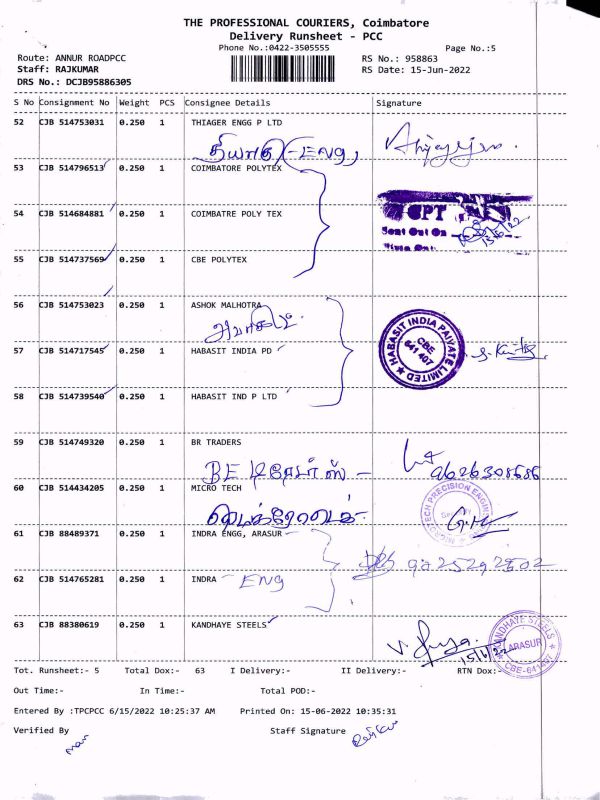 THE PROFESSIONAL COURIERS, Coimbatore
Delivery Runsheet - PCC
Phone No.:0422-3505555
Page No.:5
Route: ANNUR ROADPCC
RS No.: 958863
Staff: RAJKUMAR
RS Date: 15-Jun-2022
DRS No.: DCJB95886305
S No Consignment No Weight PCS Consignee Details Signature
52 CJB 514753031 0.250 1 THIAGER ENGG P LTD
தியாகு - ENG,
53 CJB 514796513 0.250 1 COIMBATORE POLYTEX
CPT
54 CJB 514684881 0.250 1 COIMBATRE POLY TEX
Sent Out On
15/6/22
55 CJB 514737569 0.250 1 CBE POLYTEX
56 CJB 514753023 0.250 1 ASHOK MALHOTRA
HABASIT INDIA PRIVATE LIMITED
CBE
641 407
57 CJB 514717545 0.250 1 HABASIT INDIA PD
58 CJB 514739540 0.250 1 HABASIT IND P LTD
59 CJB 514749320 0.250 1 BR TRADERS
9626308686
60 CJB 514434205 0.250 1 MICRO TECH
61 CJB 88489371 0.250 1 INDRA ENGG, ARASUR
62 CJB 514765281 0.250 1 INDRA - ENG
63 CJB 88380619 0.250 1 KANDHAYE STEELS
15/6/22
KANDHAYE STEELS
ARASUR
CBE-641407
Tot. Runsheet:- 5 Total Dox:- 63 I Delivery:- II Delivery:- RTN Dox:-
Out Time:- In Time:- Total POD:-
Entered By :TPCPCC 6/15/2022 10:25:37 AM Printed On: 15-06-2022 10:35:31
Verified By Staff Signature